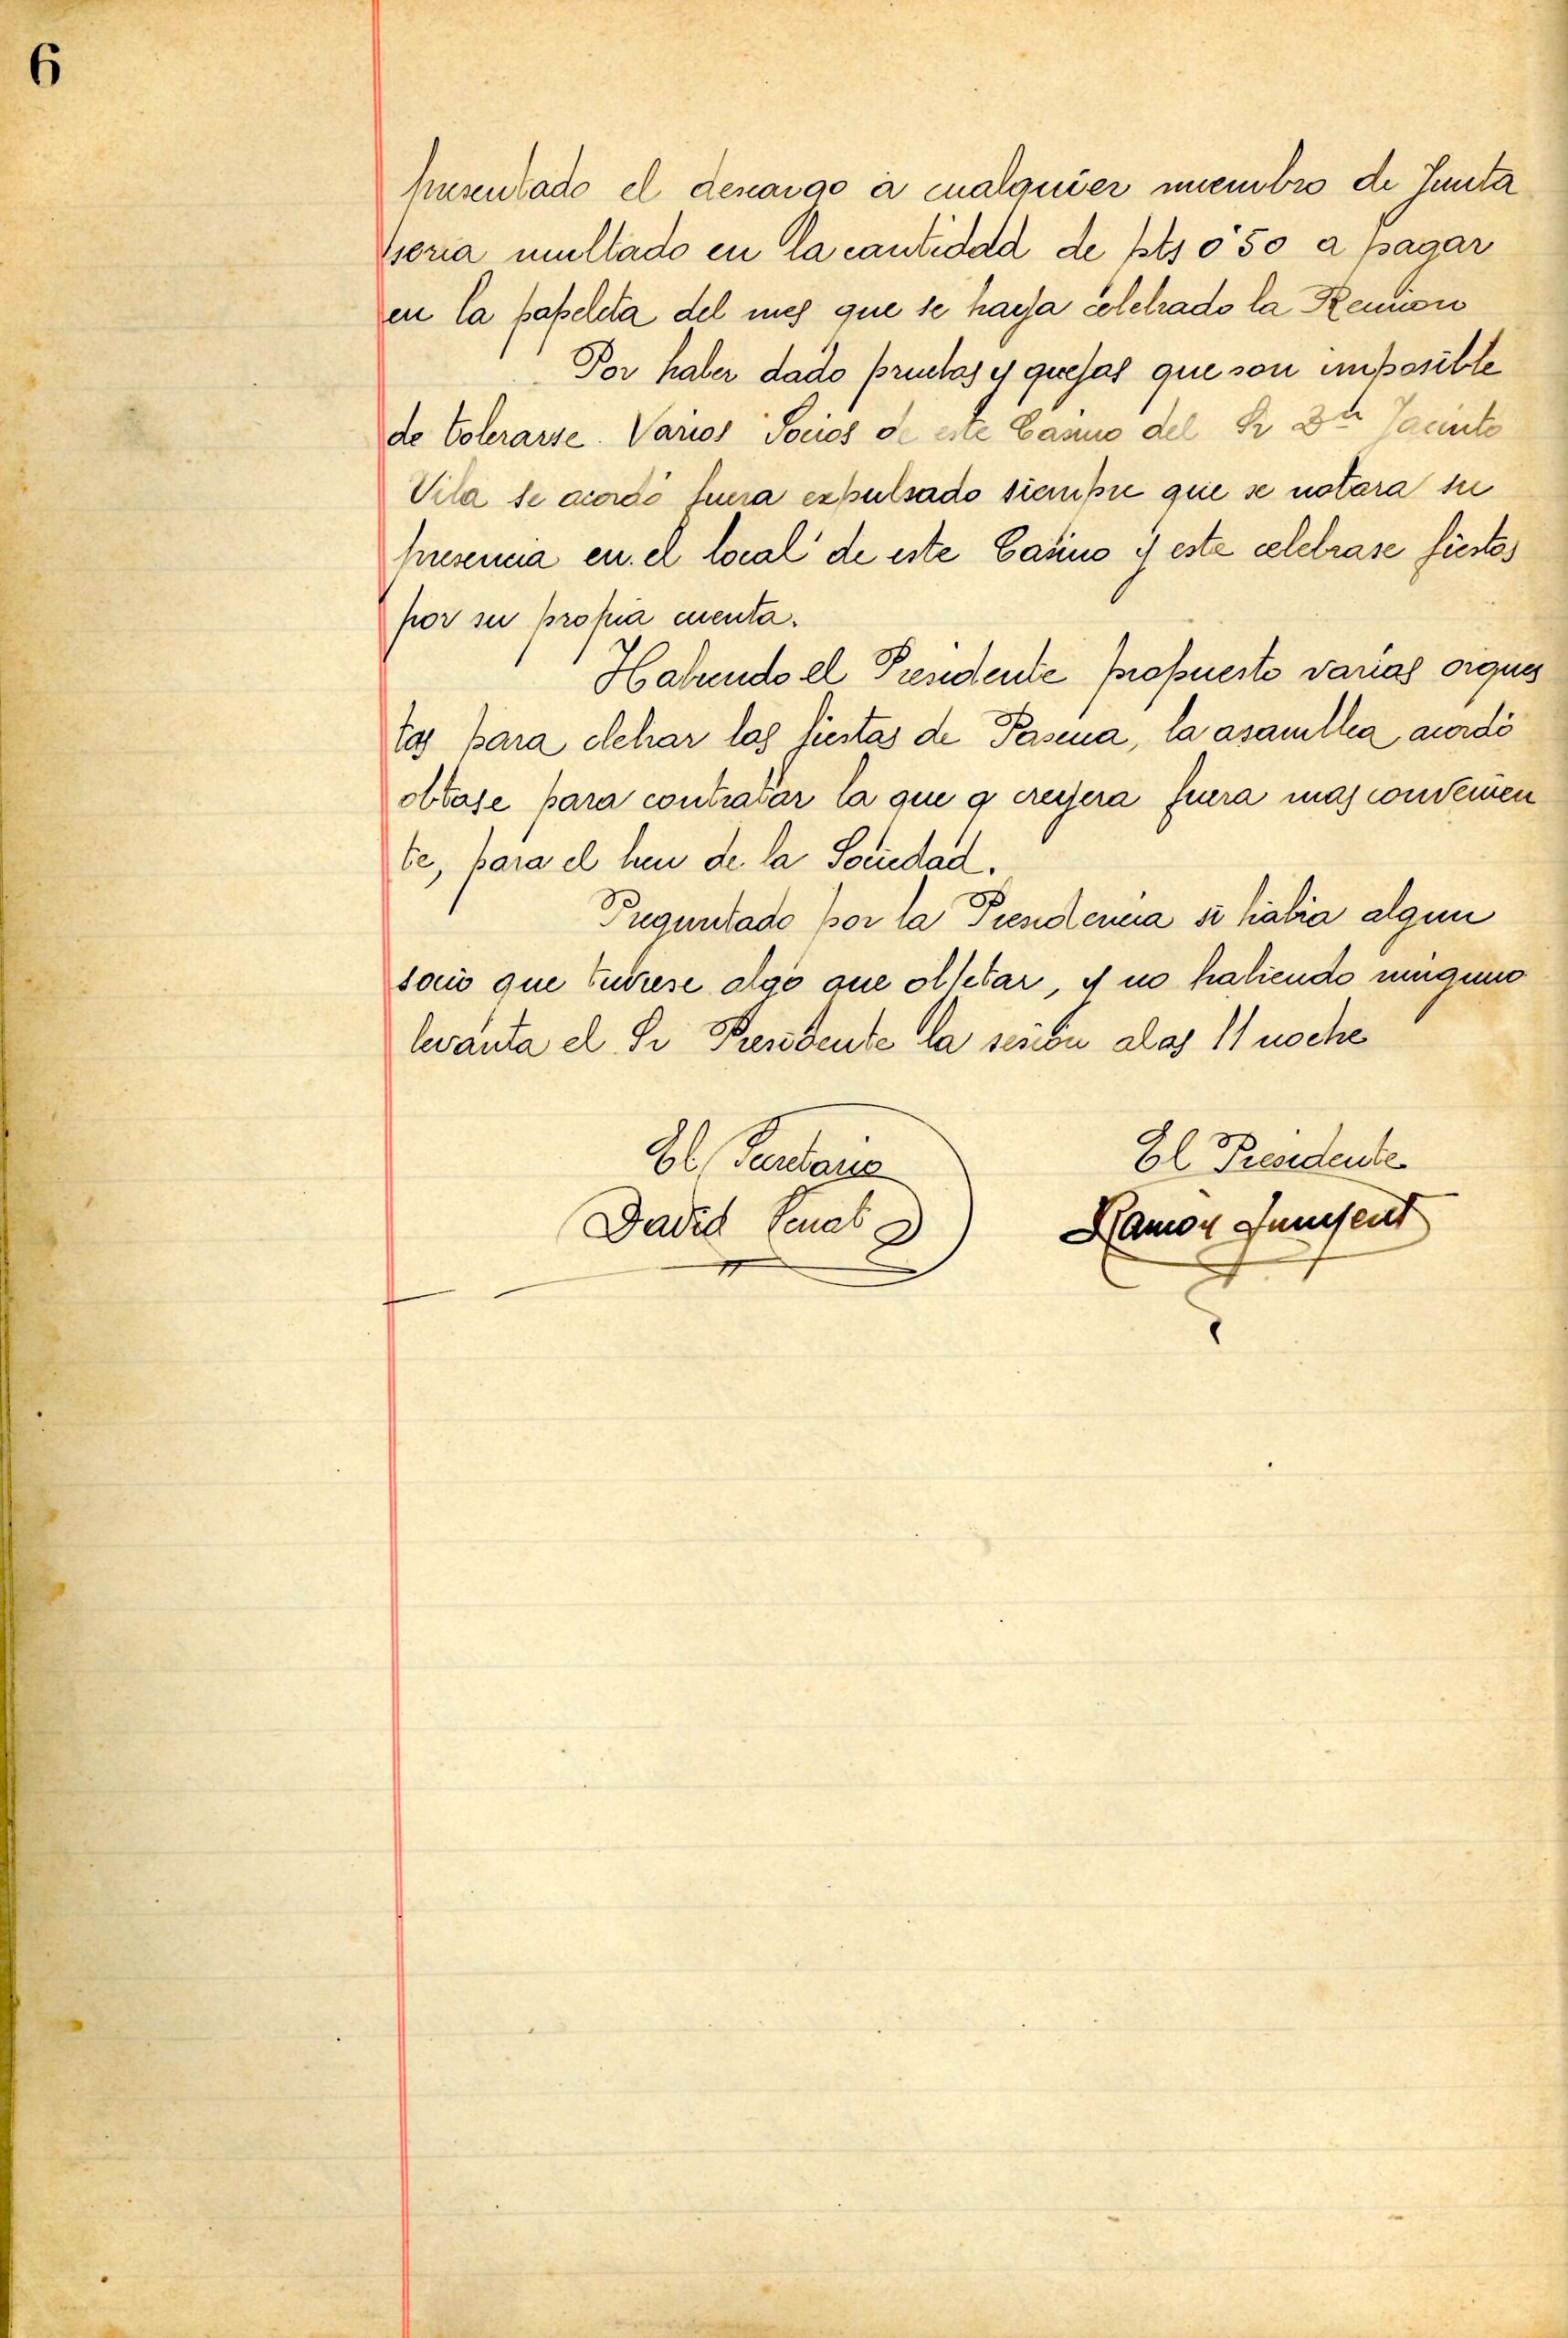 6
presentado el descargo à cualquier miembro de Junta
seria multado en la cantidad de pts 0'50 a pagar
en la papeleta del mes que se haya celebrado la Reunion
Por haber dado pruebas y quejas que son imposible
de tolerarse. Varios Socios de este Casino del Sr Dn Jacinto
Vila se acordó fuera expulsado siempre que se notara su
presencia en el local de este Casino y este celebrase fiestas
por su propia cuenta.
Habiendo el Presidente propuesto varias orques
tas para celebrar las fiestas de Pascua, la asamblea acordó
obtase para contratar la que q creyera fuera mas convenien
te, para el bien de la Sociedad.
Preguntado por la Presidencia si habia algun
socio que tubiese algo que objetar, y no habiendo ninguno
levanta el Sr Presidente la sesión alas 11 noche
El Secretario
El Presidente
David
Ramón Junyent